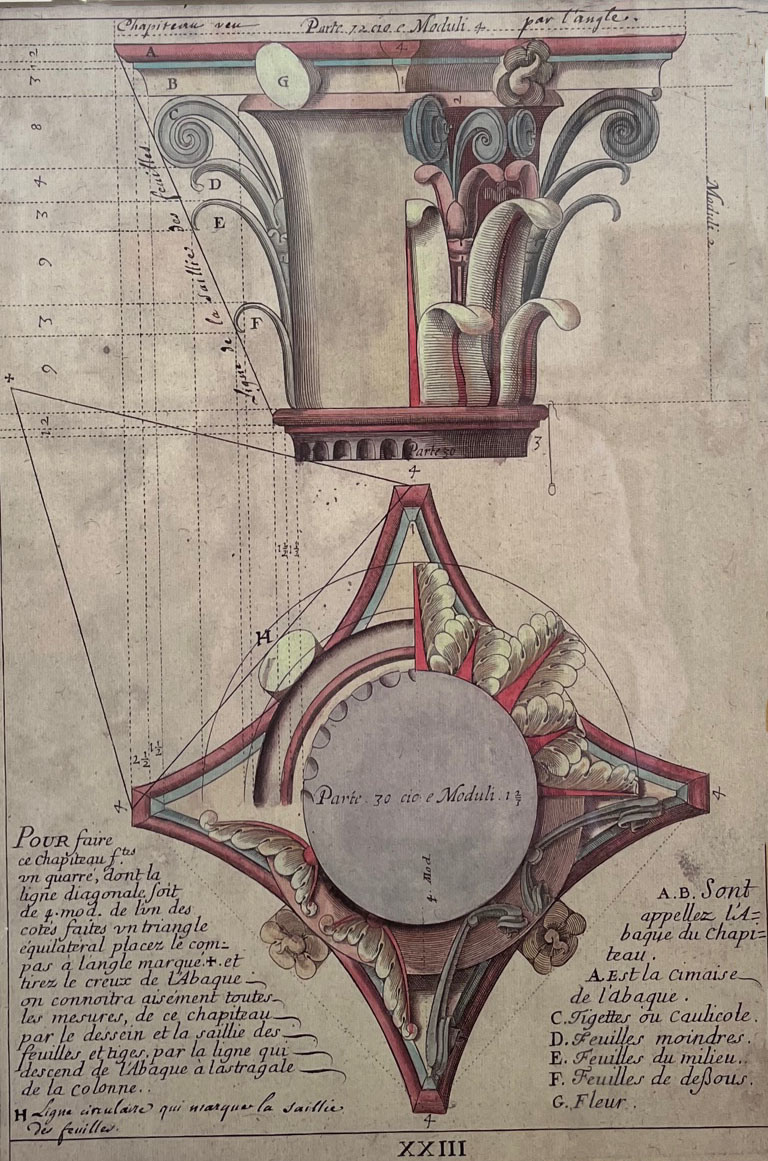 Chapiteau veu Parte. 72 cio e Moduli. 4. par l'angle.
A
4.
1 2
B
G
1
3
2
C
8
D
4
E
3
Moduli 2
9
F
3
Ligne de la saillie des feuilles
9
+
1 2
3
Parte 30
4
1
H
2 1/2
1 1/2
4
4
Parte. 30 cio e Moduli. 1 2/7
4. Mod.
POUR faire
ce chapiteau f.tes
vn quarré, dont la
ligne diagonale soit
de 4. mod. de l'vn des
cotés faites vn triangle
equilateral placez le com=
pas à l'angle marqué .+. et
tirez le creux de l'Abaque
on connoitra aisément toutes
les mesures, de ce chapiteau
par le dessein et la saillie des
feuilles et tiges. par la ligne qui
descend de l'Abaque à l'astragale
de la colonne..
H Ligne circulaire qui marque la saillie
des feuilles.
A.B. Sont
appellez l'A=
baque du Chapi=
teau.
A. Est la Cimaise
de l'abaque.
C. Tigettes ou Caulicole.
D. Feuilles moindres.
E. Feuilles du milieu..
F. Feuilles de deßous.
G. Fleur.
4
XXIII